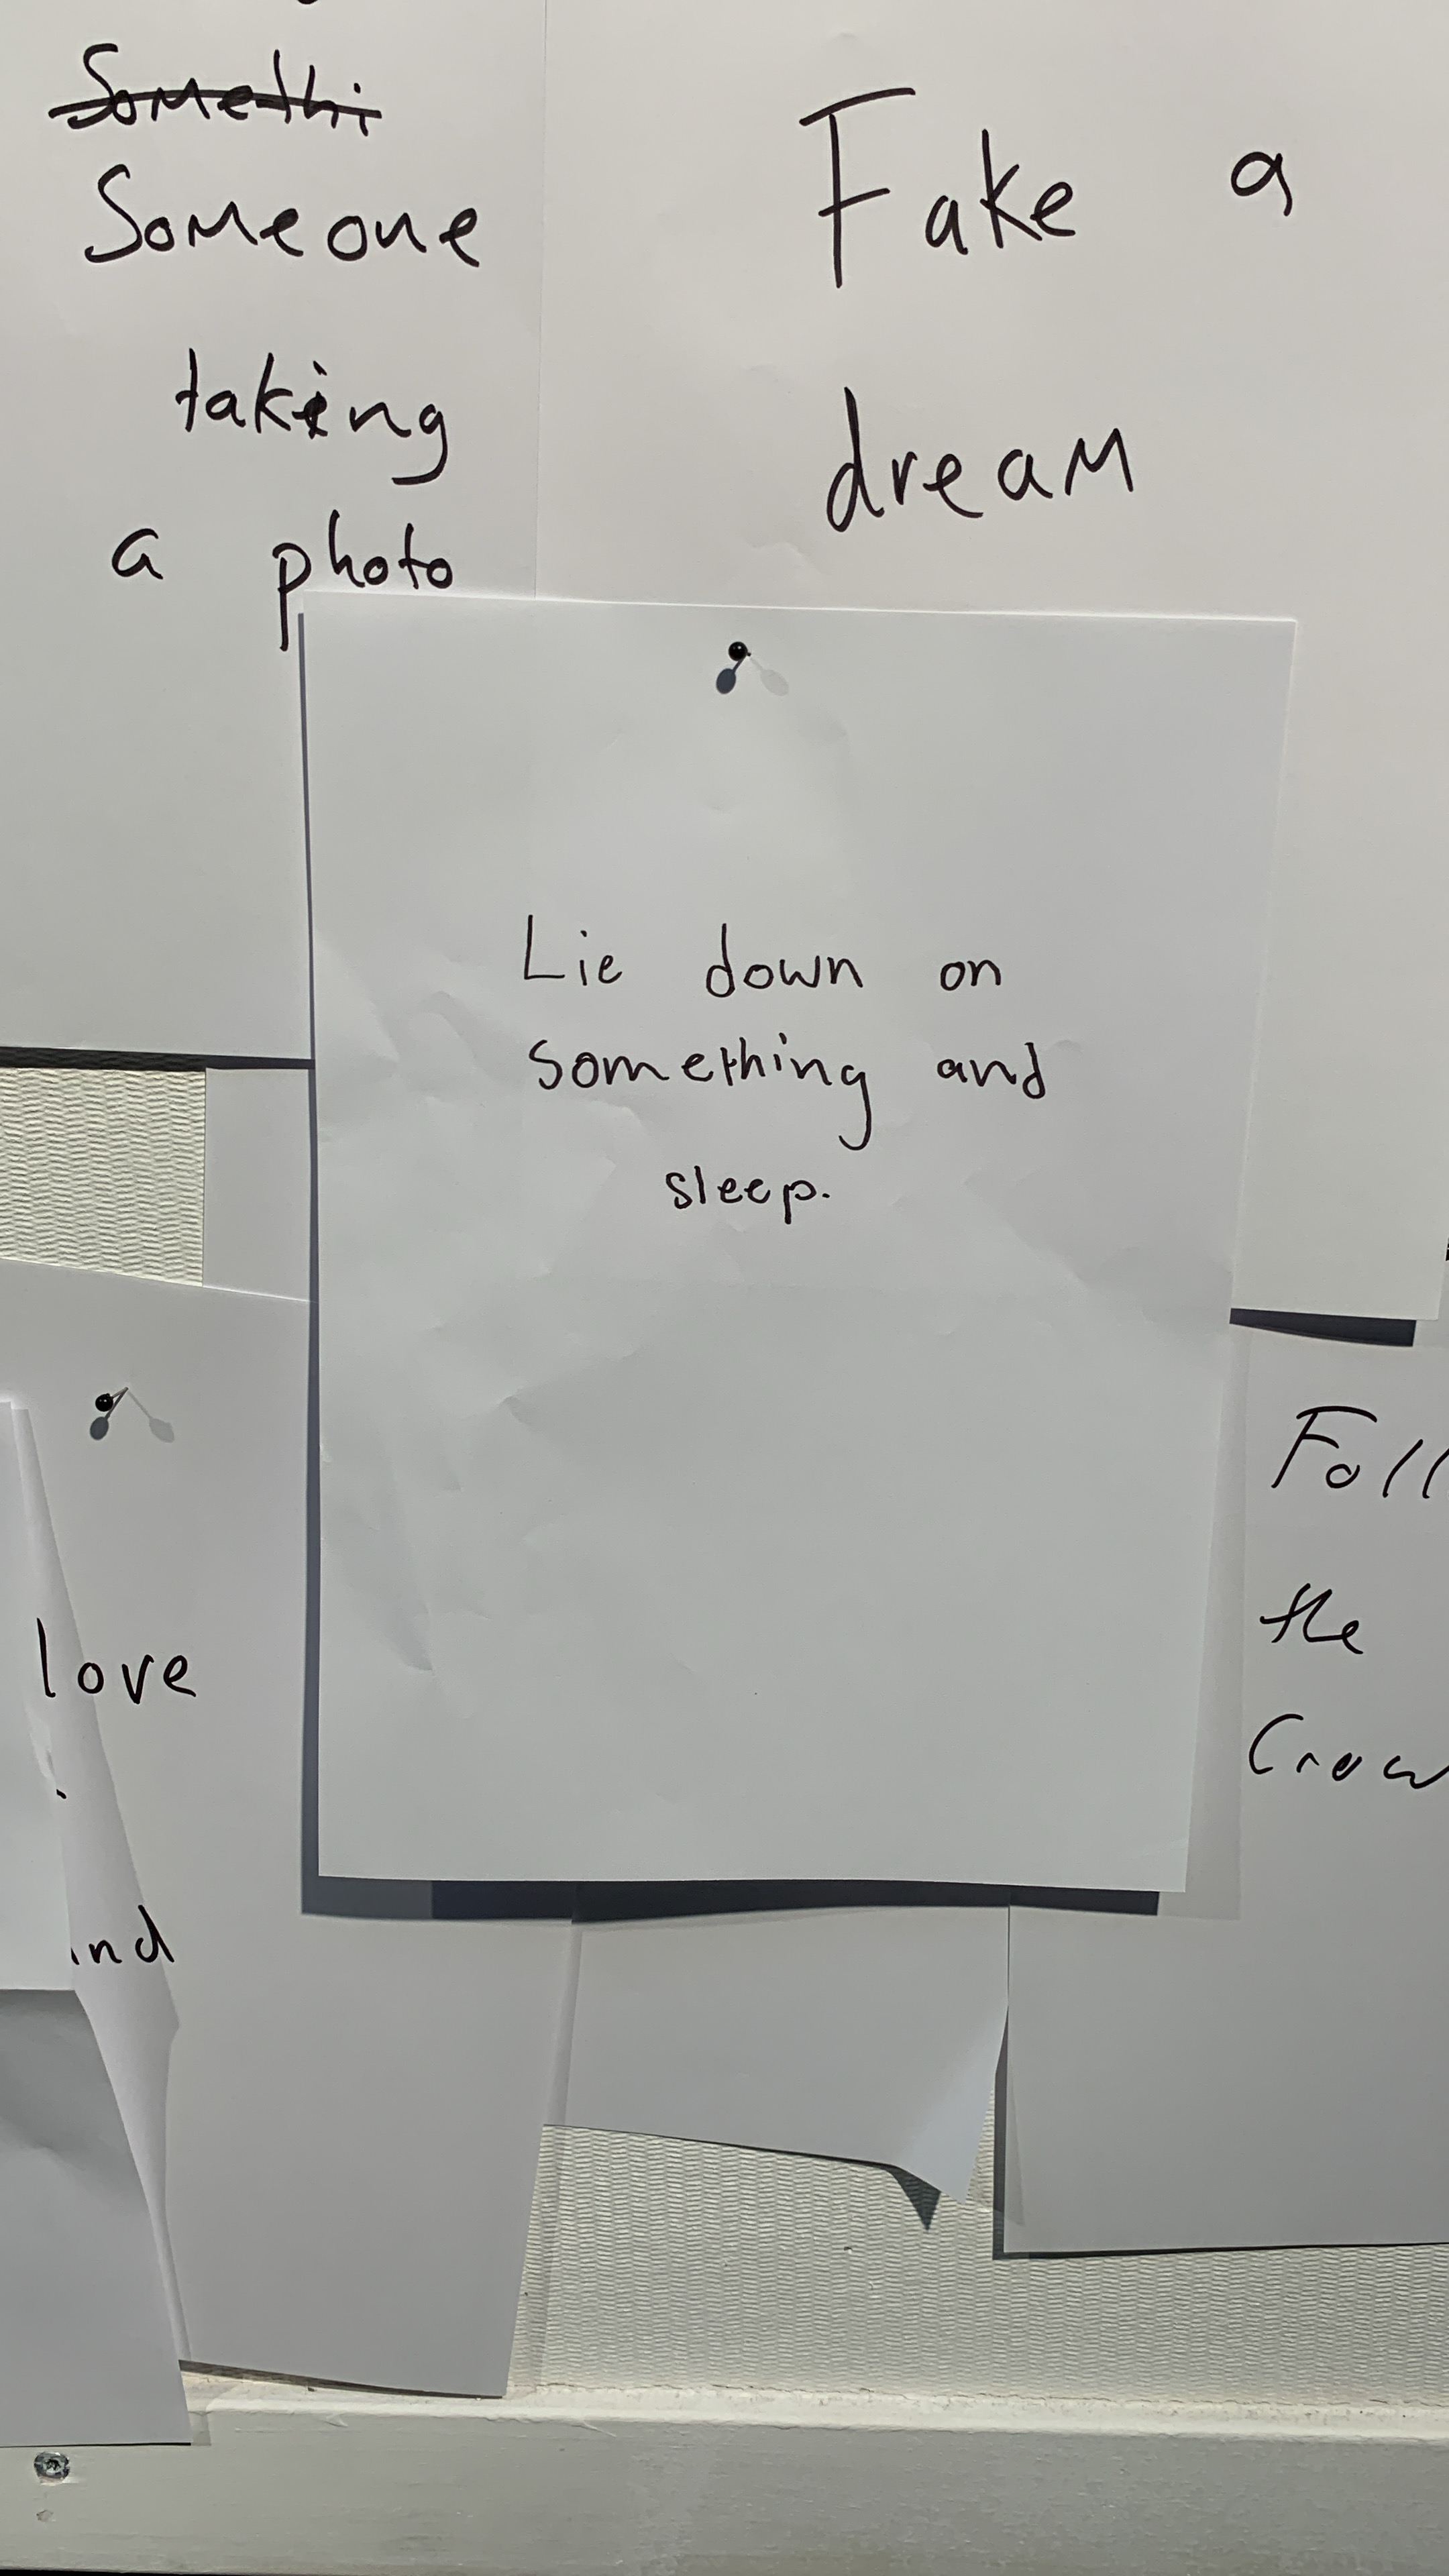 Somethi
Someone
taking
a photo
Fake a
dream
Lie down on
something and
sleep.
love
the